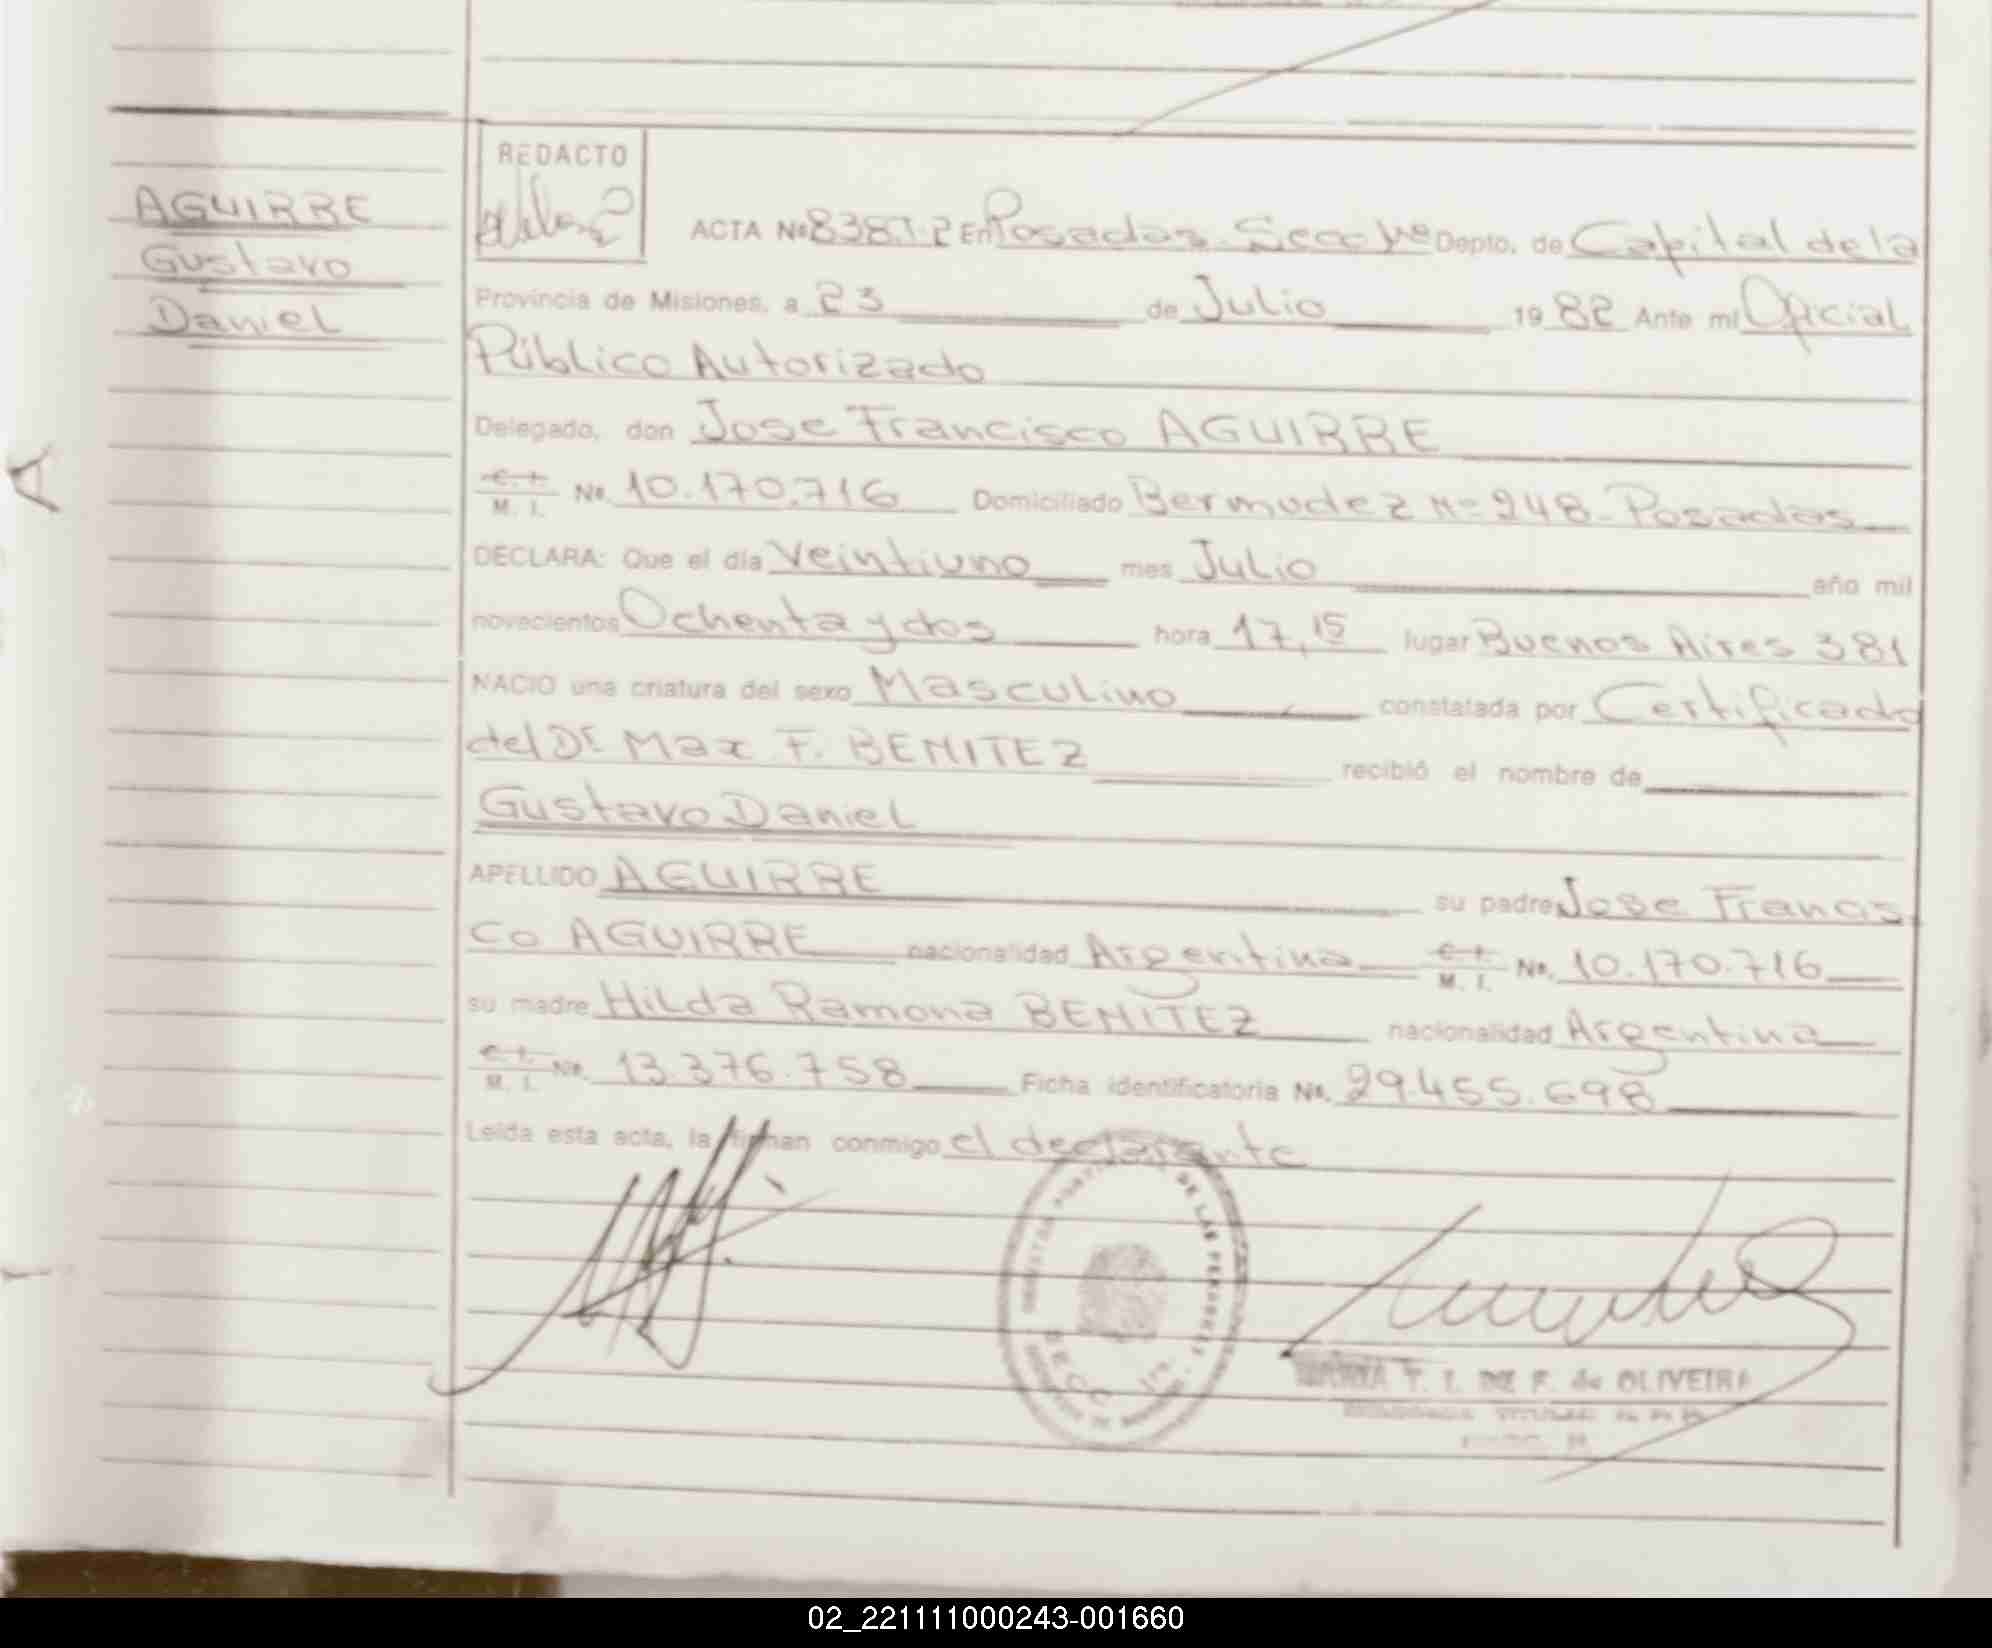 AGUIRRE
Gustavo
Daniel
REDACTO
ACTA Nº 838.T.2 En Posadas. Secc 1ra Depto. de Capital de la
Provincia de Misiones, a 23 de Julio 1982 Ante mi Oficial
Público Autorizado
Delegado, don Jose Francisco AGUIRRE
C. I. M. I. Nº. 10.170.716 Domiciliado Bermudez Nº 248. Posadas
DECLARA: Que el día Veintiuno mes Julio año mil
novecientos Ochenta y dos hora 17,15 lugar Buenos Aires 381
NACIO una criatura del sexo Masculino constatada por Certificado
del Dr Max F. BENITEZ recibió el nombre de
Gustavo Daniel
APELLIDO AGUIRRE su padre Jose Francis
co AGUIRRE nacionalidad Argentina C. I. M. I. Nº. 10.170.716
su madre Hilda Ramona BENITEZ nacionalidad Argentina
C. I. M. I. Nº. 13.376.758 Ficha identificatoria Nº. 29.455.698
Leída esta acta, la firman conmigo el declarante
DE LAS PERSONAS
SECC. 1ra.
T. I. DE F. de OLIVEIRA
02_221111000243-001660